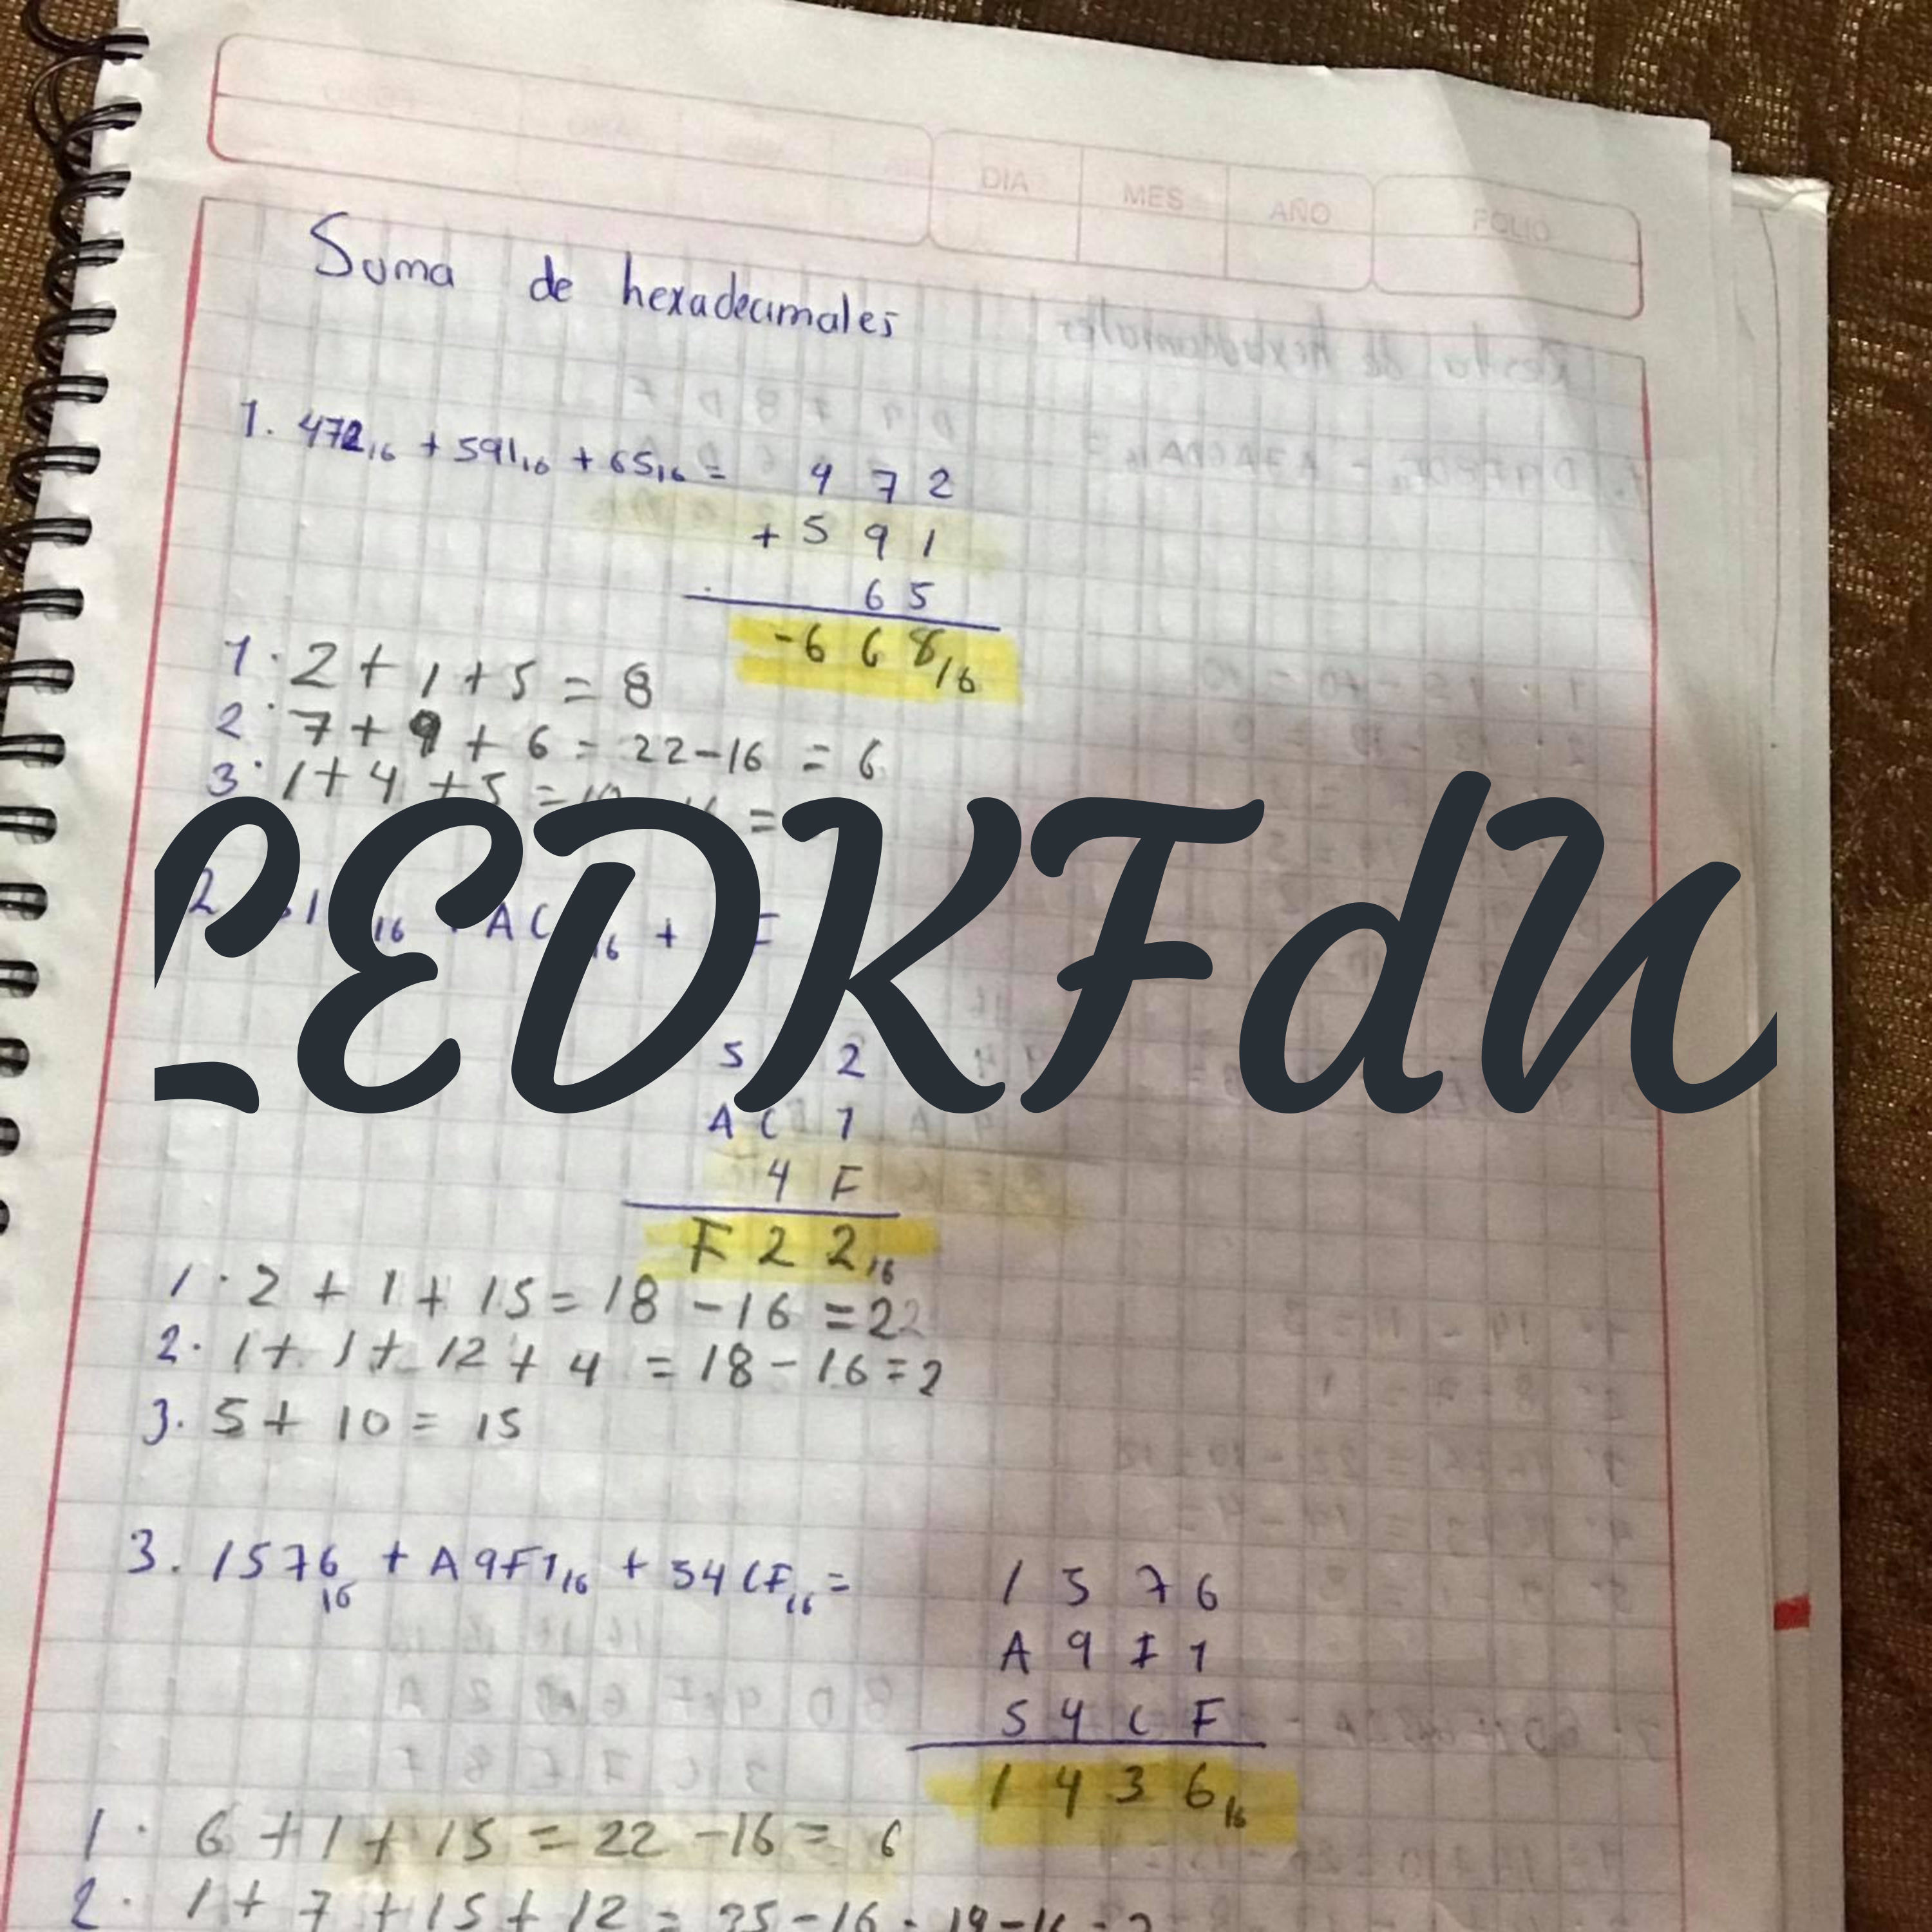 DIA MES AÑO FOLIO
Suma de hexadecimales
1. 472₁₆ + 591₁₆ + 65₁₆ = 4 7 2
+ 5 9 1
6 5
-6 6 8/16
1. 2 + 1 + 5 = 8
2. 7 + 9 + 6 = 22-16 = 6
3. 1 + 4 + 5 =
EDKFdU
2
5 2
A C 1
4 F
F 2 2₁₆
1. 2 + 1 + 15 = 18 - 16 = 22
2. 1 + 1 + 12 + 4 = 18 - 16 = 2
3. 5 + 10 = 15
3. 1576₁₆ + A9F1₁₆ + 54CF₁₆ = 1 5 7 6
A 9 F 1
5 4 C F
1 4 3 6₁₆
1. 6 + 1 + 15 = 22 - 16 = 6
2. 1 + 7 + 15 + 12 = 35 - 16 = 19 - 16 = 3